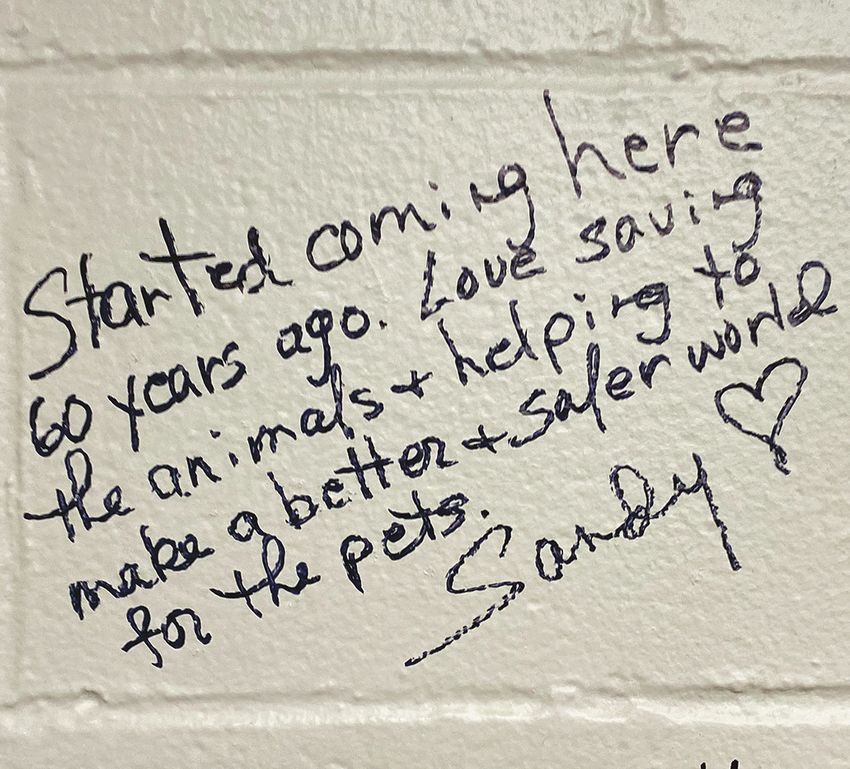 Started coming here
60 years ago. Love saving
the animals + helping to
make a better + safer world
for the pets.
Sandy ♡